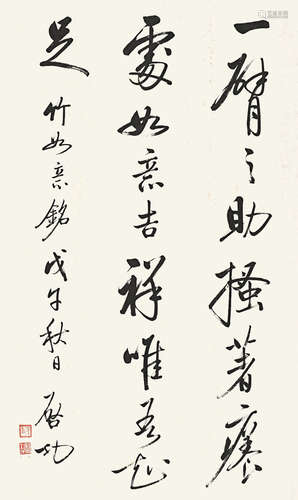 一臂之助搔著癢
處如意吉祥唯吾知
足 竹如意銘 戊午秋日 啓功